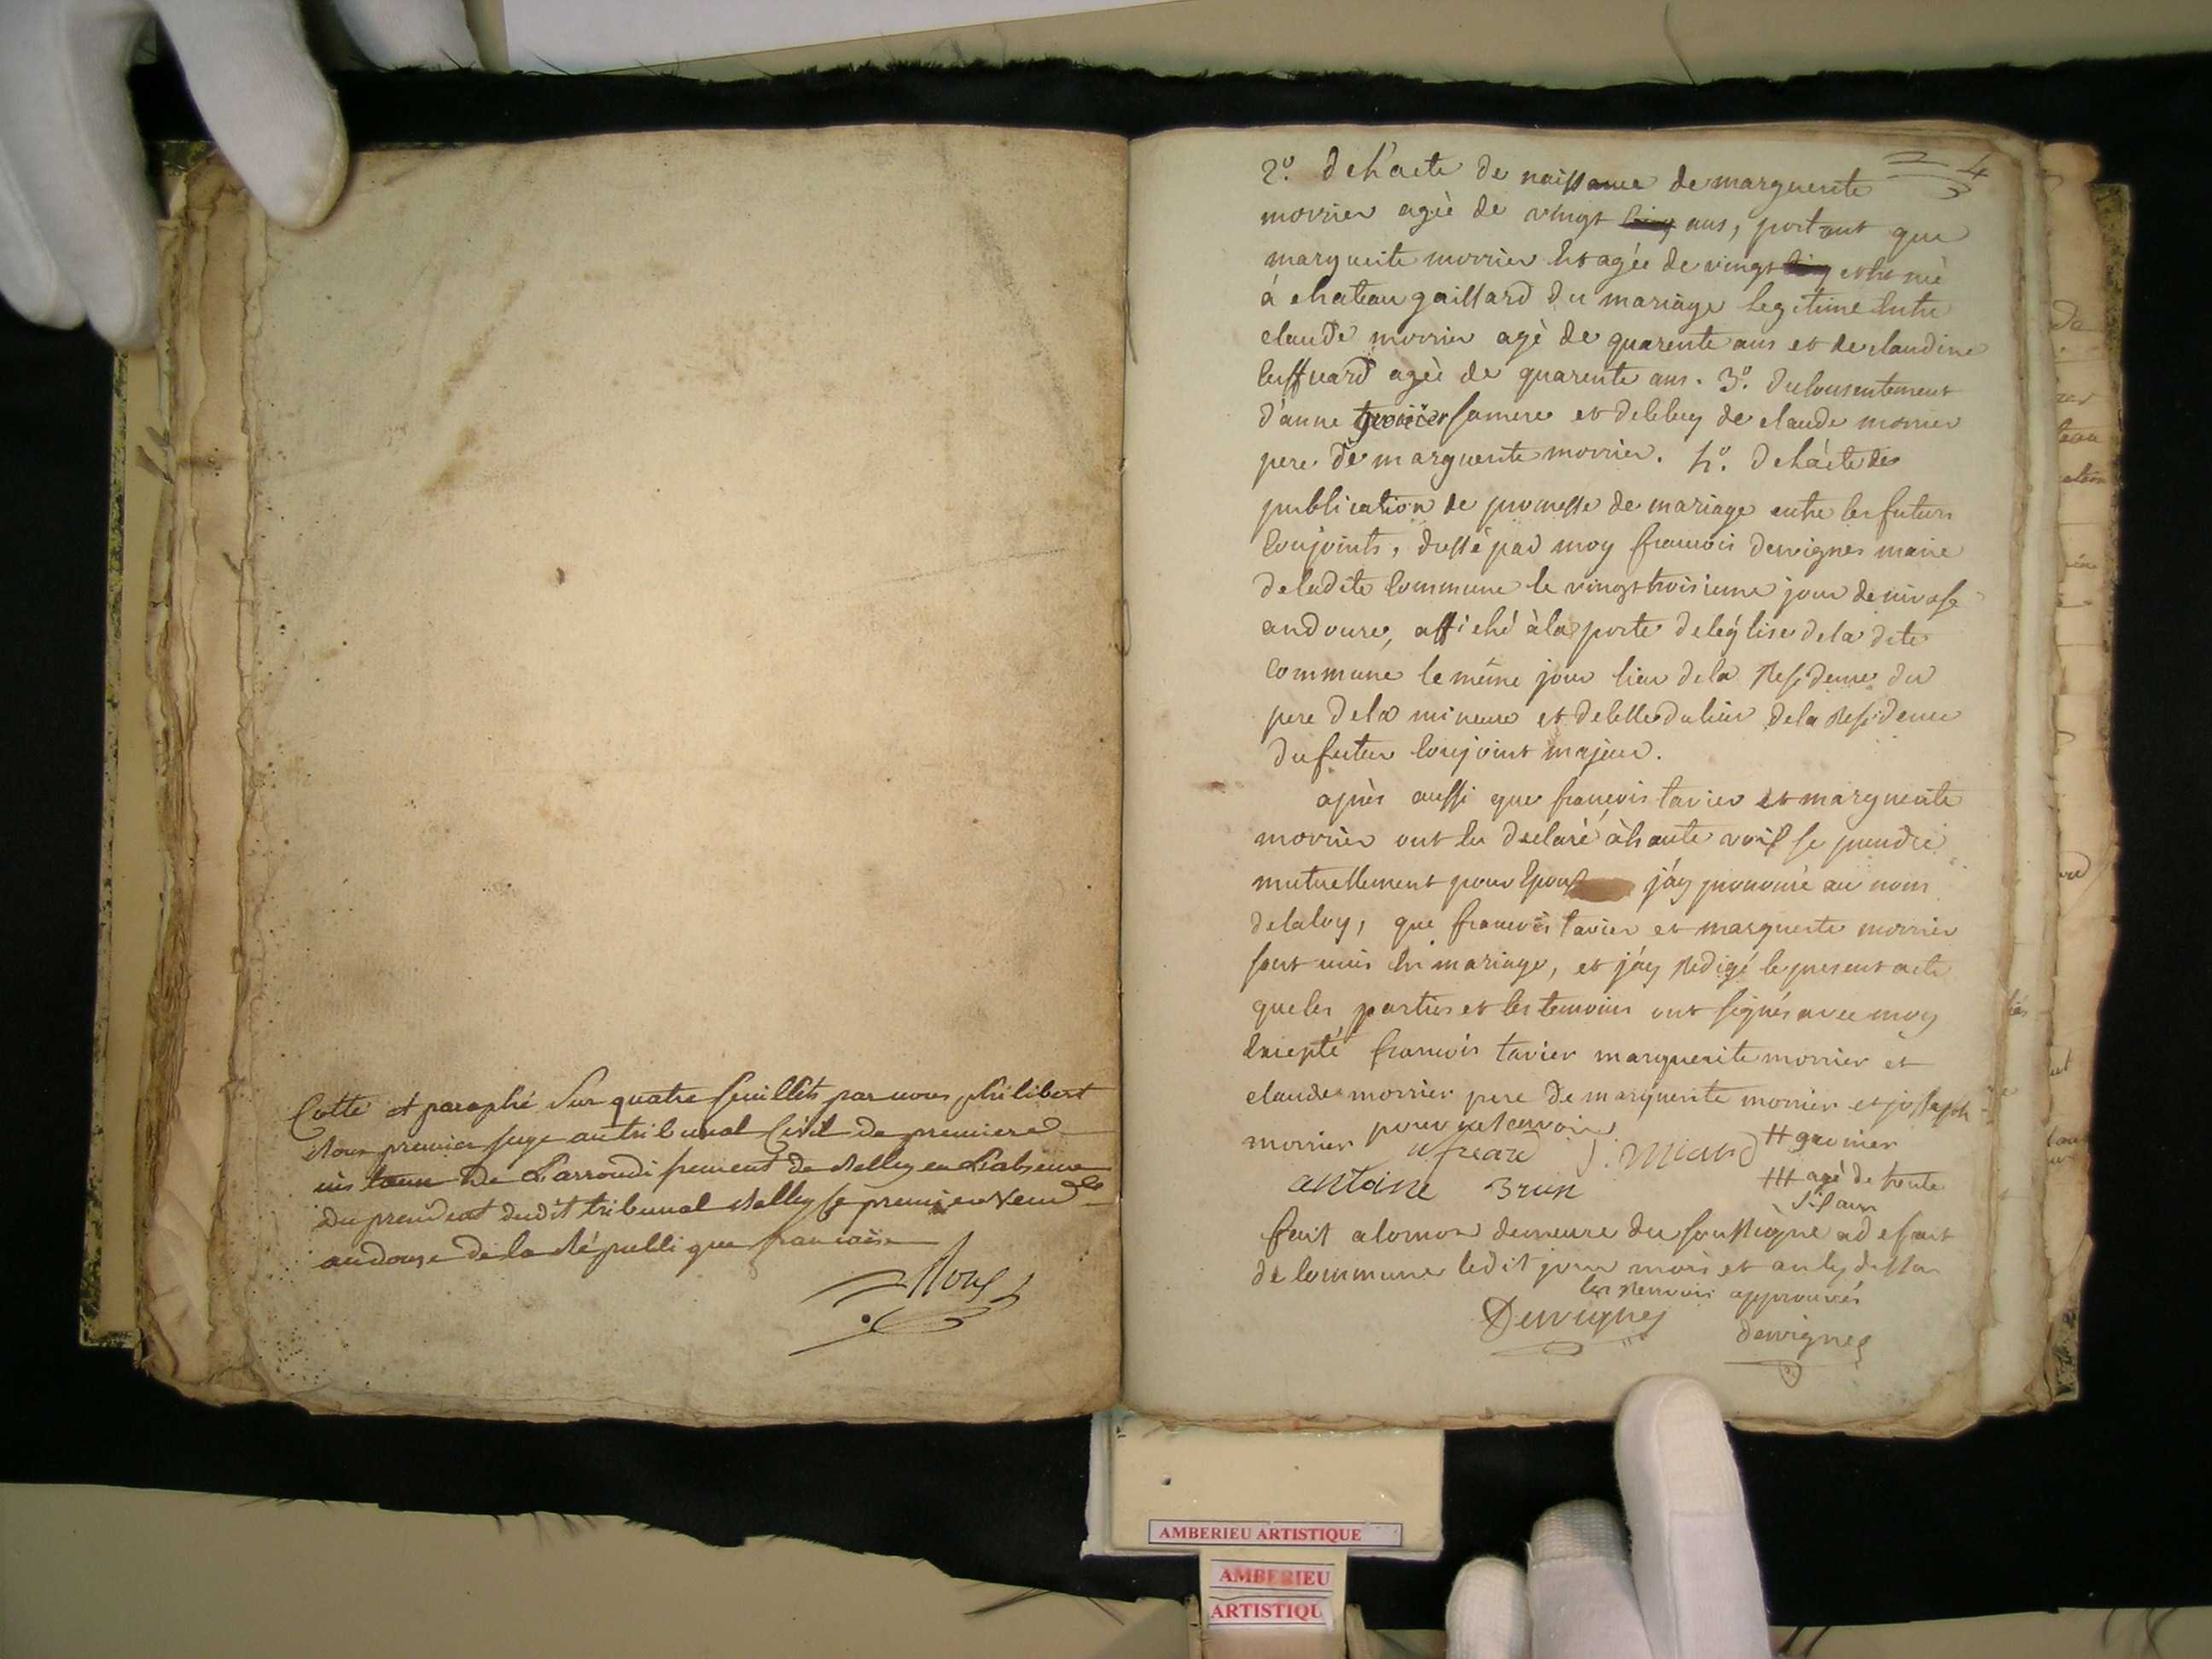 Cotté et paraphé sur quatre feuillets par nous philibert
Roux premier juge au tribunal Civil de premiere
instance De L'arrondissement de Belley en L'absence
du president dudit tribunal Belley le premier Vend.re
an douze de la République francaise
Roux
4
2º. de l'acte de naissance de marguerite
morrier agèe de vingt ans, portant que
marguerite morrier est agée de vingt et est née
à chateau gaillard du mariage legitime entre
claude morrier agè de quarente ans et de claudine
agèe de quarente ans. 3º. du consentement
d'anne sa mere et de celuy de claude morrier
pere de marguerite morrier. 4º. de l'acte de
publication de promesse de mariage entre les futurs
conjoints, dressé par moy francois dervignes maire
de ladite commune le vingt troisieme jour de nivose
an douze, affiché à la porte de l'église de la dite
commune le même jour lieu de la Residence du
pere de la mineure et de celle du lieu de la Residence
du futur conjoint majeur.
après aussi que francois tavier et marguerite
morrier ont eu declaré à haute voix se prendre
mutuellement pour Epoux j'ay prononcé au nom
de la loy, que francois tavier et marguerite morrier
sont unis en mariage, et j'ay Redigé le present acte
que les parties et les temoins ont signés avec moy
Excepté francois tavier marguerite morrier et
claude morrier pere de marguerite morrier et josseph
morrier pour
J. Miand # grenier
antoine Brun ### agè de trente
six ans
fait a la maison demeure du soussigné a defaut
de commune ledit jour mois et an cy dessus
les Renvois approuvés
Dervignes
dervignes
AMBERIEU ARTISTIQUE
AMBERIEU
ARTISTIQU